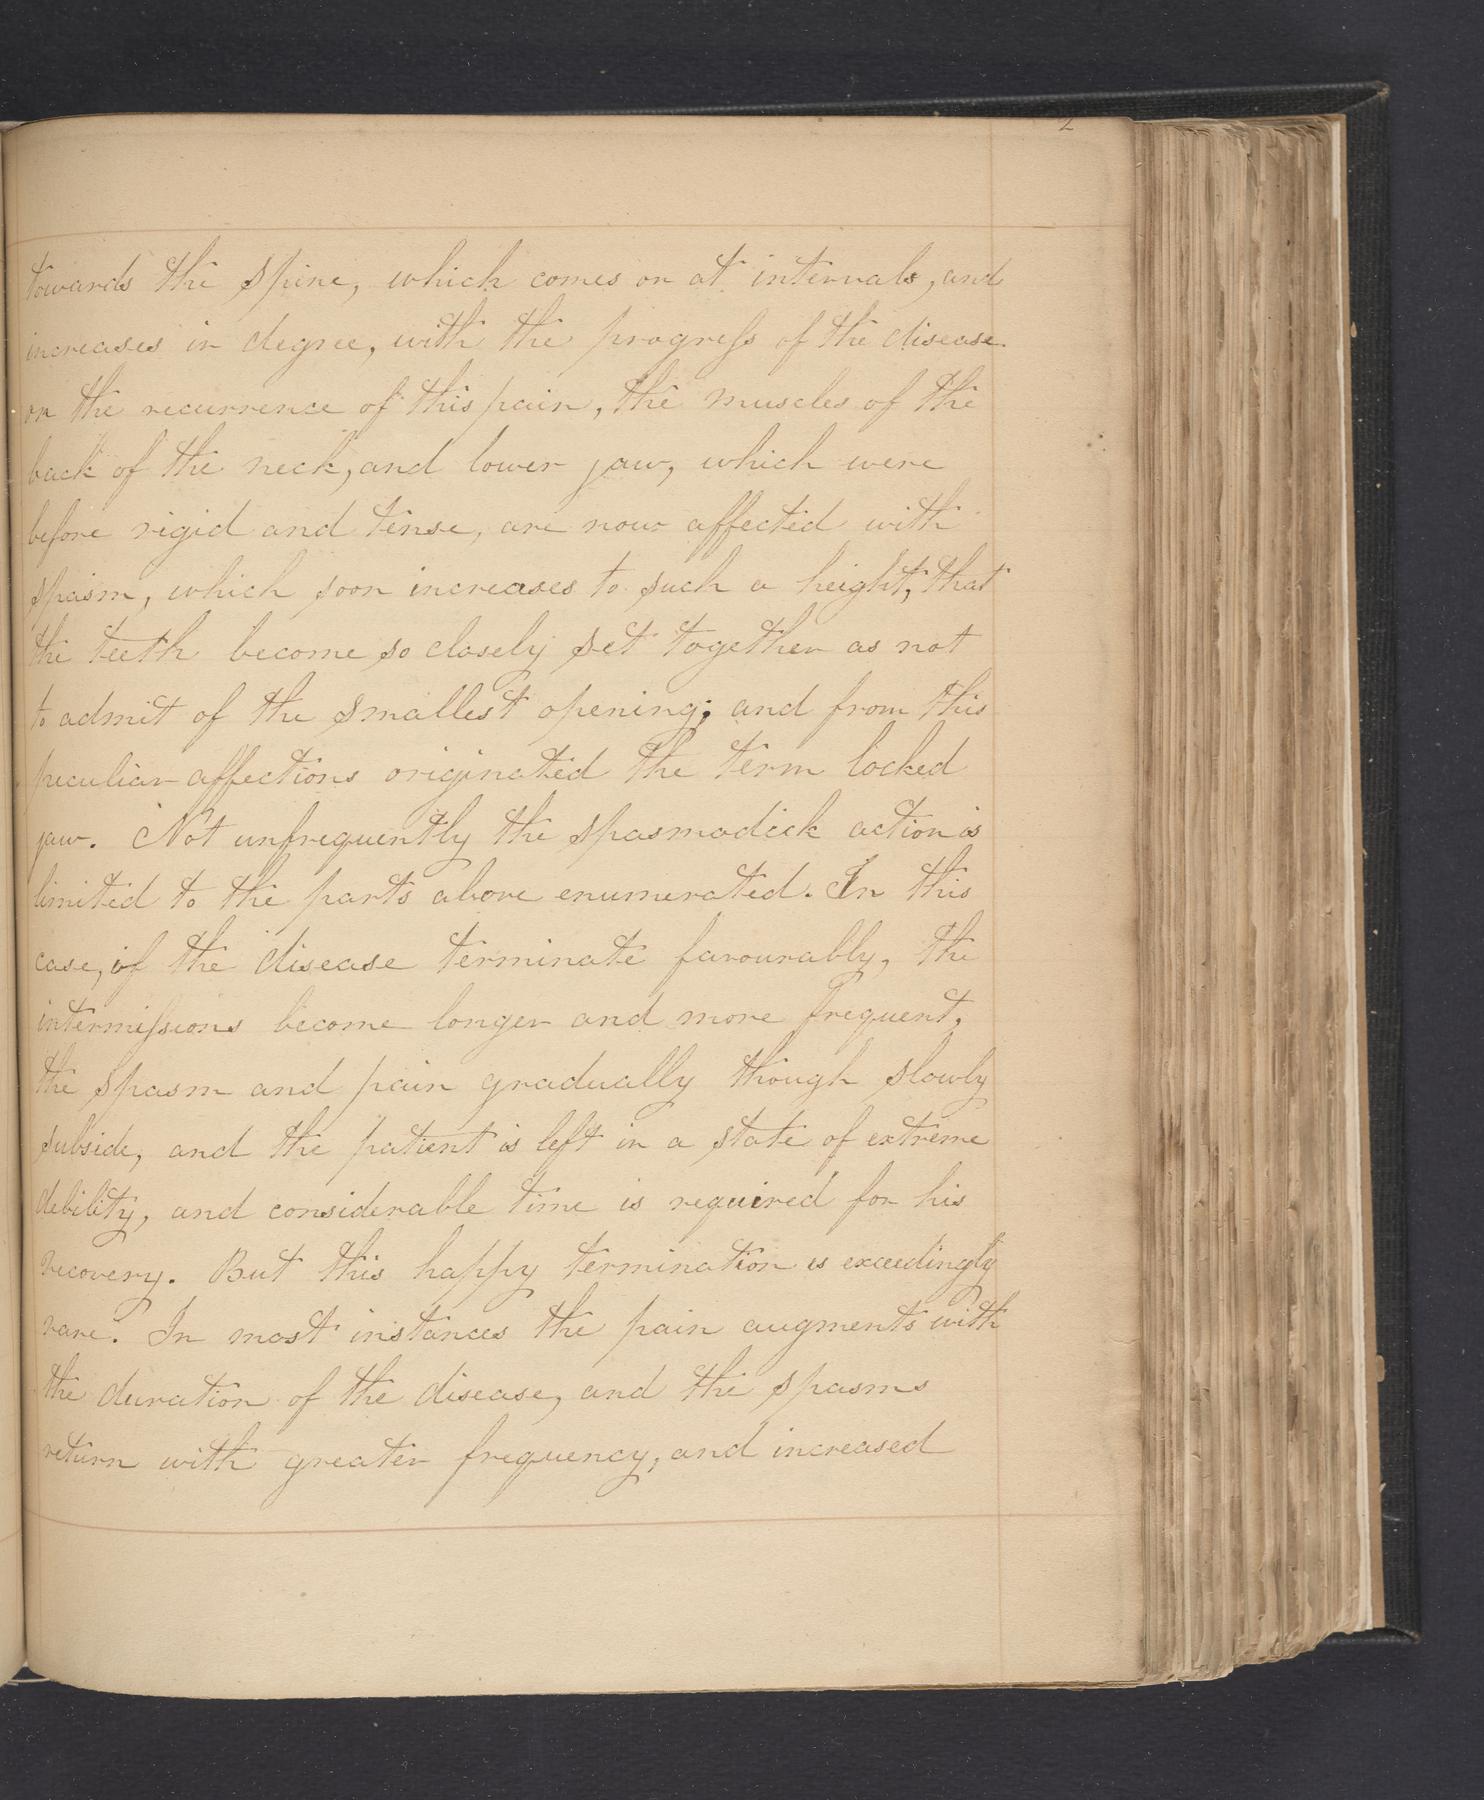 2
towards the spine, which comes on at intervals, and
increases in degree, with the progreſs of the disease.
on the recurrence of this pain, the muscles of the
back of the neck, and lower jaw, which were
before rigid and tense, are now affected with
spasm, which soon increases to such a height, that
the teeth become so closely set together as not
to admit of the smallest opening; and from this
peculiar affections originated the term locked
jaw. Not unfrequently the spasmodick action is
limited to the parts above enumerated. In this
case, if the disease terminate favourably, the
intermiſsions become longer and more frequent,
the spasm and pain gradually though slowly
subside, and the patient is left in a state of extreme
debility, and considerable time is required for his
recovery. But this happy termination is exceedingly
rare. In most instances the pain augments with
the duration of the disease, and the spasms
return with greater frequency, and increased